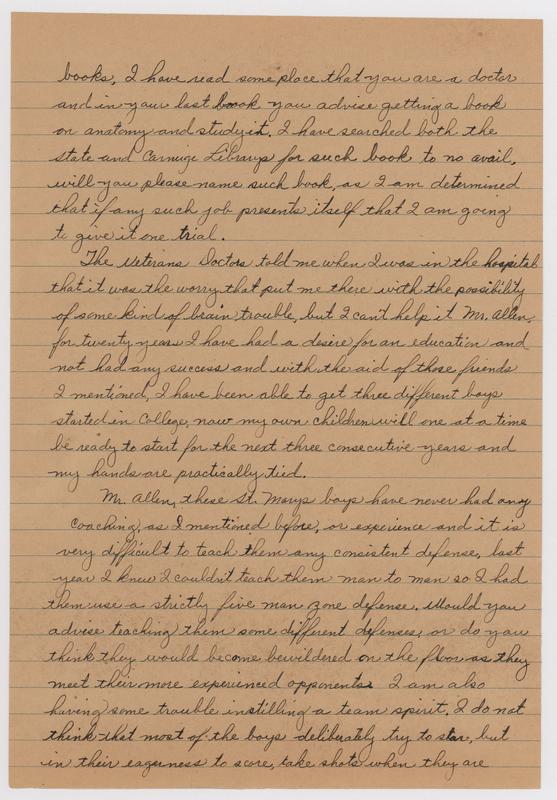 books, I have read some place that you are a doctor
and in your last book you advise getting a book
on anatomy and study it. I have searched both the
state and Carnegie Librarys for such book to no avail,
will you please name such book, as I am determined
that if any such job presents itself that I am going
to give it one trial.
The Veterans Doctors told me when I was in the hospital
that it was the worry that put me there with the possibility
of some kind of brain trouble, but I can't help it Mr. Allen,
for twenty years I have had a desire for an education and
not had any success and with the aid of those friends
I mentioned, I have been able to get three different boys
started in College, now my own children will one at a time
be ready to start for the next three consecutive years and
my hands are practically tied.
Mr. Allen, these St. Marys boys have never had any
coaching, as I mentioned before, or experience and it is
very difficult to teach them any consistent defense, last
year I knew I couldn't teach them man to man so I had
them use a strictly five man zone defense. Would you
advise teaching them some different defenses, or do you
think they would become bewildered on the floor as they
meet their more experienced opponents. I am also
having some trouble instilling a team spirit. I do not
think that most of the boys deliberately try to star, but
in their eagerness to score, take shots when they are